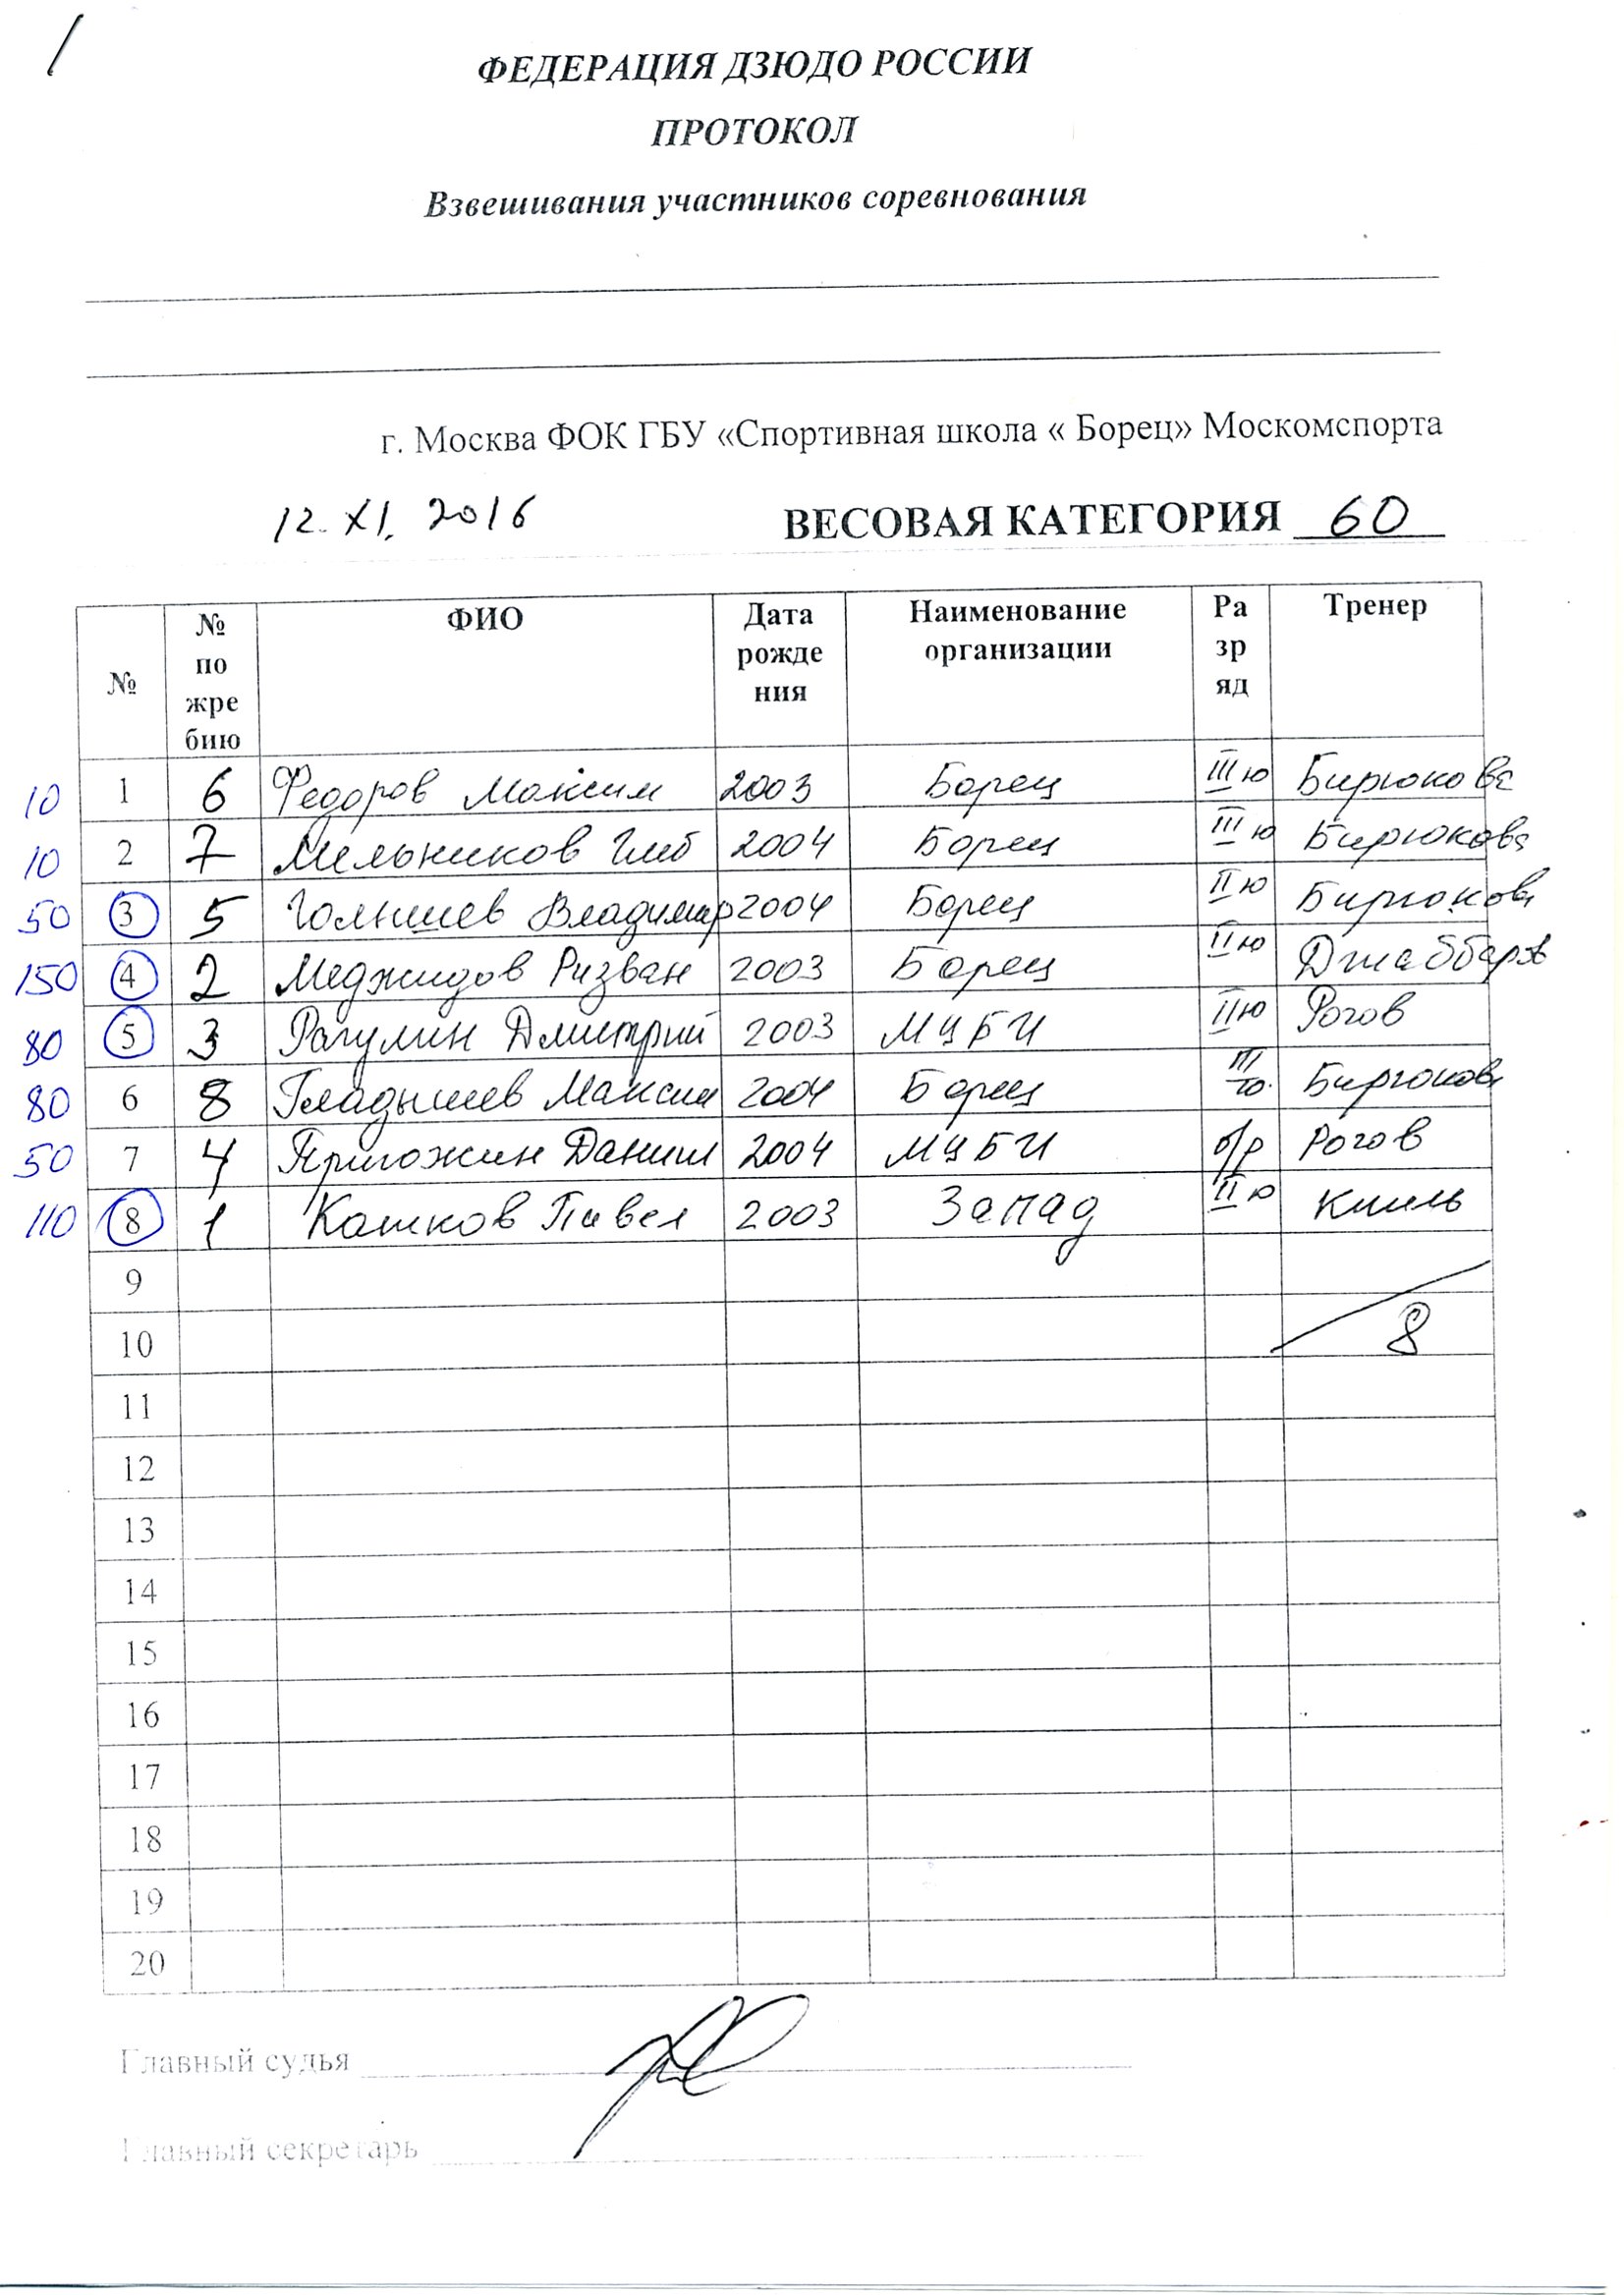 ФЕДЕРАЦИЯ ДЗЮДО РОССИИ
ПРОТОКОЛ
Взвешивания участников соревнования
г. Москва ФОК ГБУ «Спортивная школа « Борец» Москомспорта
12. XI. 2016 ВЕСОВАЯ КАТЕГОРИЯ 60
№ № по жре бию ФИО Дата рожде ния Наименование организации Ра зр яд Тренер
10 1 6 Федоров Максим 2003 Борец III ю Бирюкова
10 2 7 Мельников Глеб 2004 Борец III ю Бирюкова
50 3 5 Владимир 2004 Борец II ю Бирюкова
150 4 2 Меджидов Ризван 2003 Борец II ю
80 5 3 Рагулин Дмитрий 2003 МЦБИ II ю Рогов
80 8 6 8 Гладышев Максим 2004 Борец III ю. Бирюкова
50 7 4 Пригожин Данил 2004 МЦБИ б/р Рогов
110 8 1 Кашков Павел 2003 Запад II ю
9
10 8
11
12
13
14
15
16
17
18
19
20
Главный судья
Главный секретарь